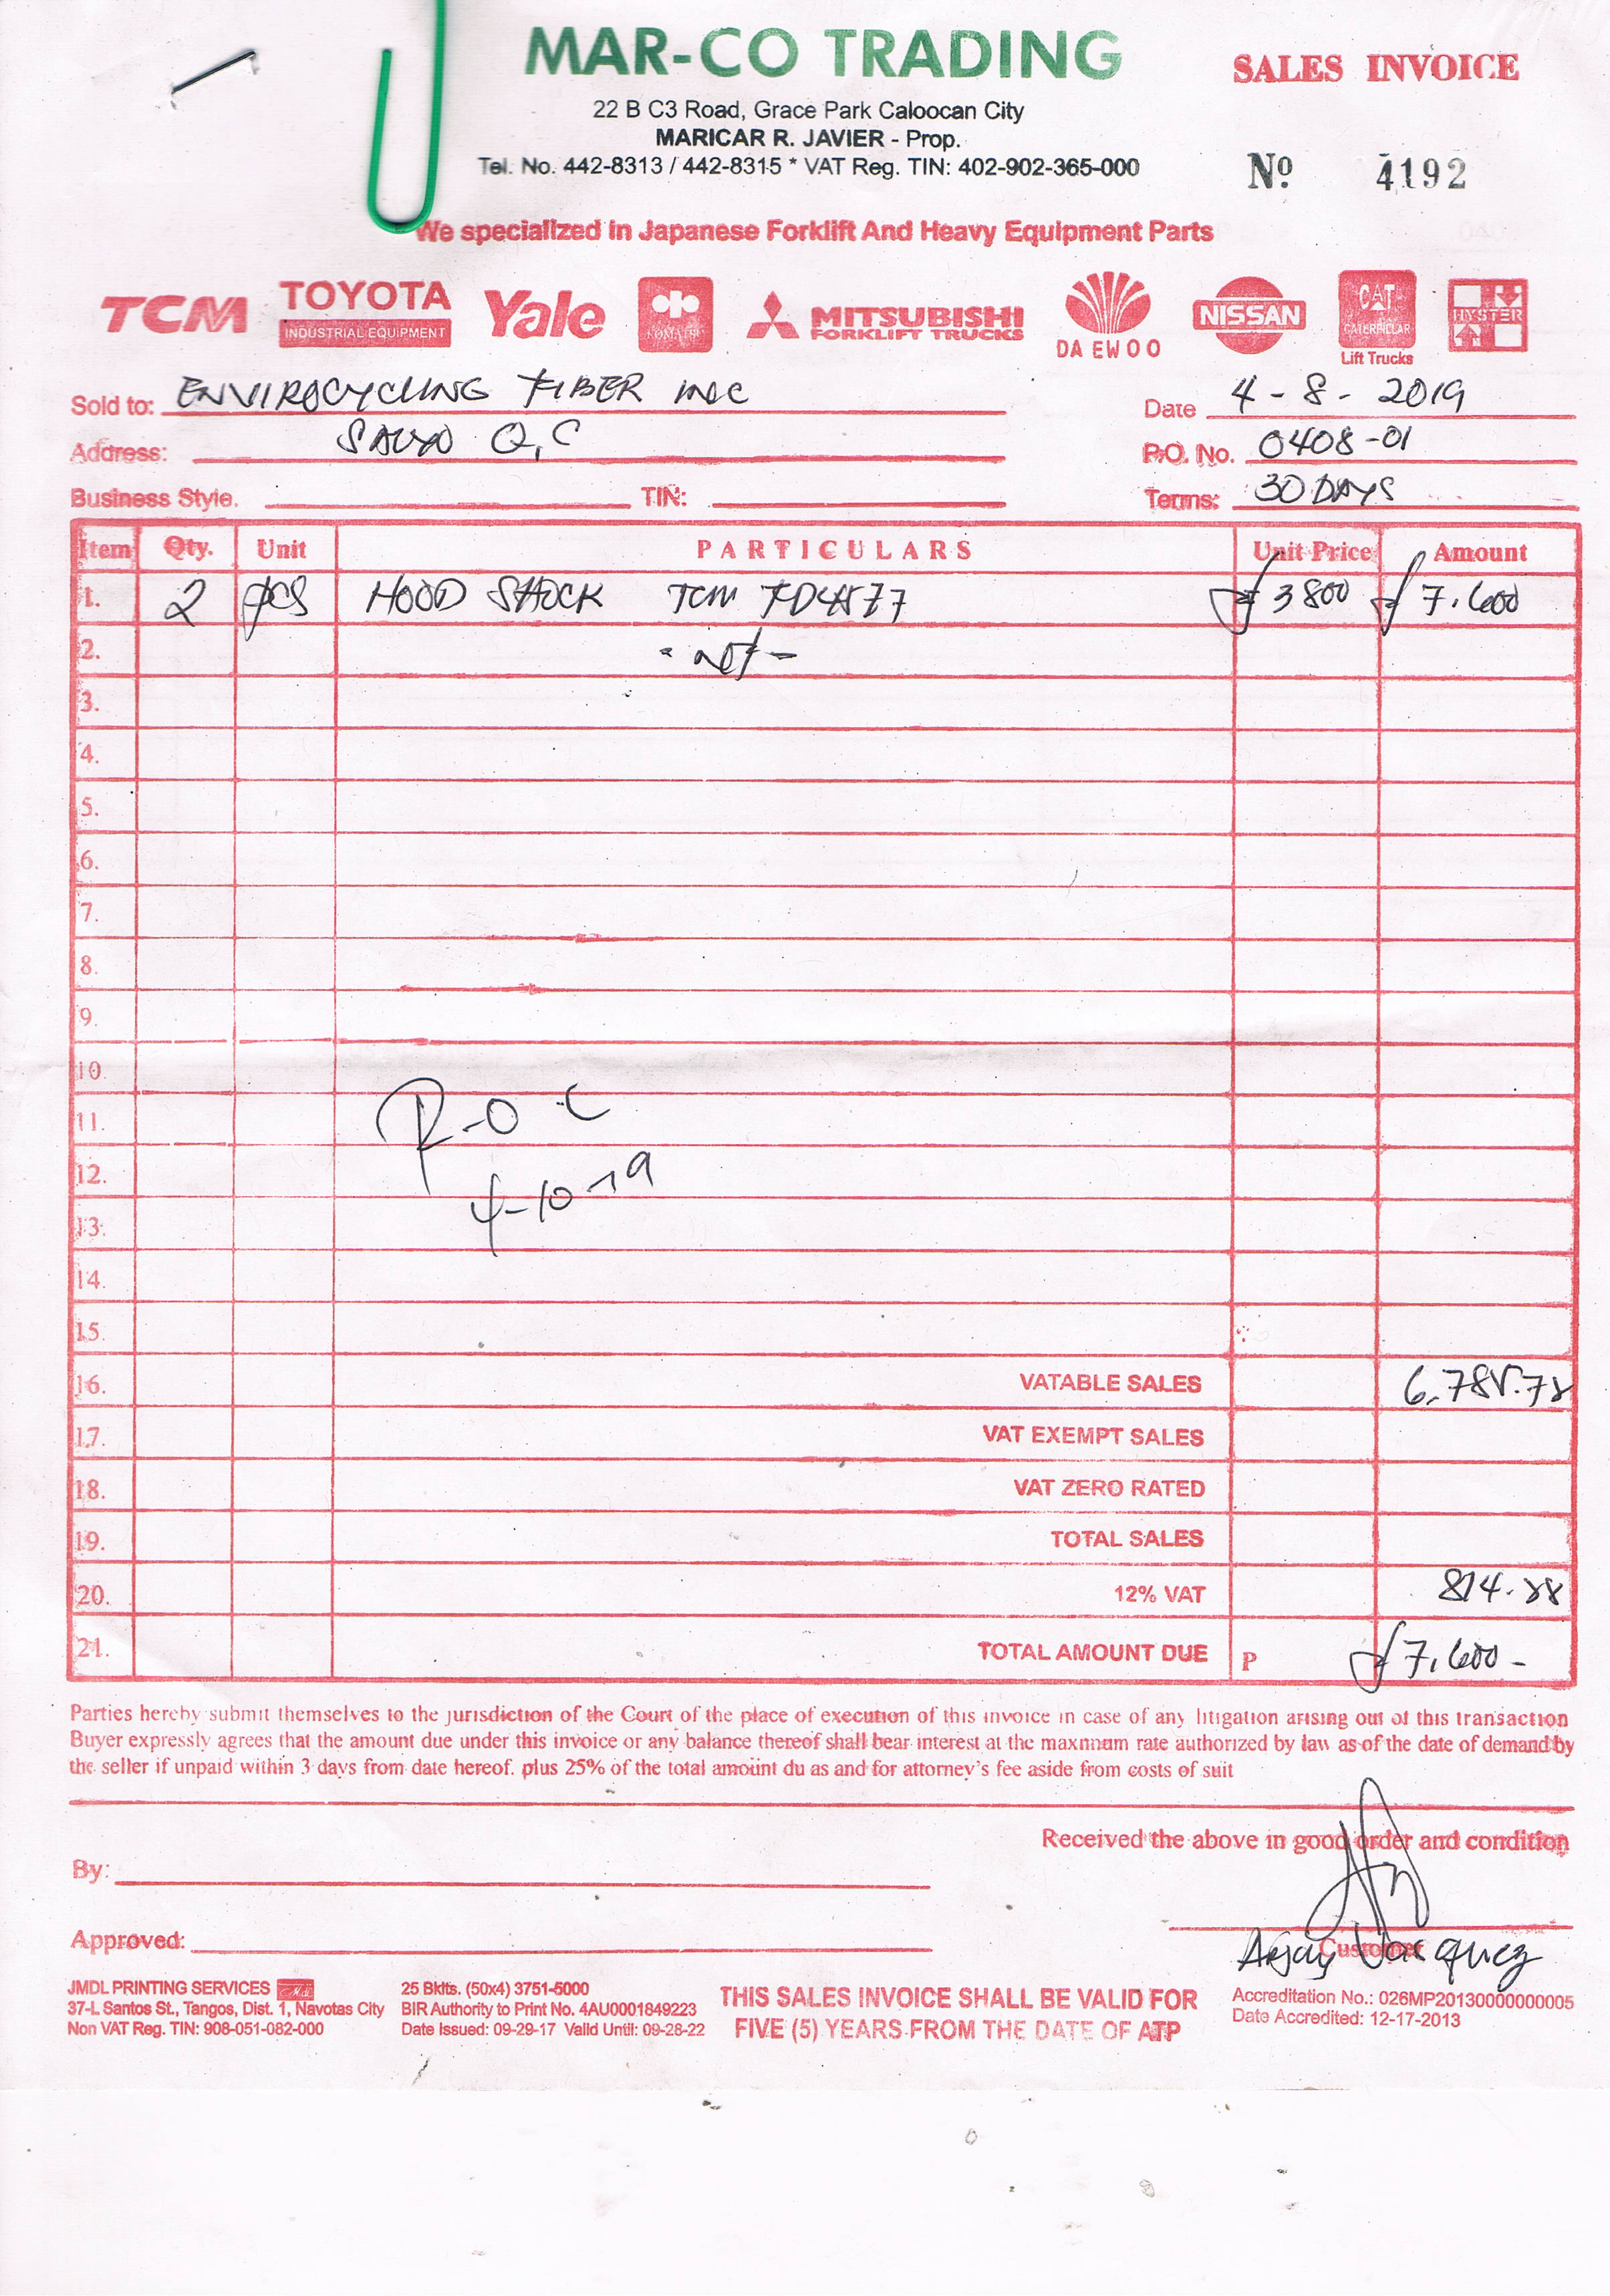 MAR-CO TRADING
SALES INVOICE
22 B C3 Road, Grace Park Caloocan City
MARICAR R. JAVIER - Prop.
Tel. No. 442-8313 / 442-8315 * VAT Reg. TIN: 402-902-365-000
Nº 4192
We specialized in Japanese Forklift And Heavy Equipment Parts
TCM TOYOTA INDUSTRIAL EQUIPMENT Yale KOMATSU MITSUBISHI FORKLIFT TRUCKS DAEWOO NISSAN CAT CATERPILLAR Lift Trucks HYSTER
Sold to: ENVIROCYCLING FIBER INC Date 4-8-2019
Address: SAUYO Q.C P.O. No. 0408-01
Business Style. TIN: Terms: 30 DAYS
Item Qty. Unit PARTICULARS Unit Price Amount
1. 2 pcs HOOD SHOCK TCM ₱ 3800 ₱ 7,600
2. - nof -
3.
4.
5.
6.
7.
8.
9.
10.
11. R-O-C
12. 4-10-19
13.
14.
15.
16. VATABLE SALES 6,785.78
17. VAT EXEMPT SALES
18. VAT ZERO RATED
19. TOTAL SALES
20. 12% VAT 814.28
21. TOTAL AMOUNT DUE P ₱ 7,600-
Parties hereby submit themselves to the jurisdiction of the Court of the place of execution of this invoice in case of any litigation arising out of this transaction
Buyer expressly agrees that the amount due under this invoice or any balance thereof shall bear interest at the maxmum rate authorized by law as of the date of demand by
the seller if unpaid within 3 days from date hereof. plus 25% of the total amount du as and for attorney's fee aside from costs of suit
Received the above in good order and condition
By:
Approved: Customer
Vasquez
JMDL PRINTING SERVICES
37-L Santos St., Tangos, Dist. 1, Navotas City
Non VAT Reg. TIN: 908-051-082-000
25 Bklts. (50x4) 3751-5000
BIR Authority to Print No. 4AU0001849223
Date Issued: 09-29-17 Valid Until: 09-28-22
THIS SALES INVOICE SHALL BE VALID FOR
FIVE (5) YEARS FROM THE DATE OF ATP
Accreditation No.: 026MP20130000000005
Date Accredited: 12-17-2013